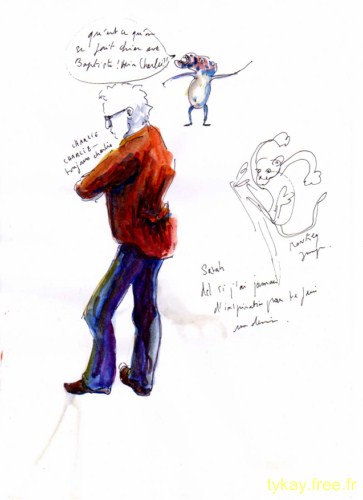 qu'est ce qu'on
se fait chier avec
Baptiste ! Hein Charlie !
CHARLIE
CHARLIE -
toujours charlie
monkey
Sarah
dsl si j'ai jamais
d'inspiration pour te faire
un dessin.
lykay.free.fr